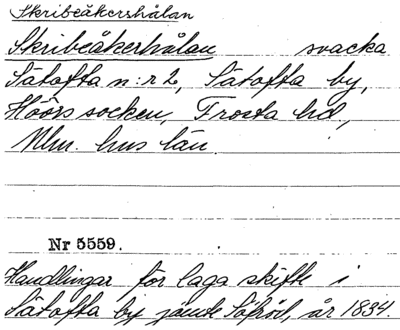 Skribeåkershålan
Skribeåkerhålan svacka
Sätofta n:r 2, Sätofta by,
Höörs socken, Frosta hd,
Mlm. hus län.
Nr 5559.
Handlingar för laga skifte i
Sätofta by jämte år 1834.